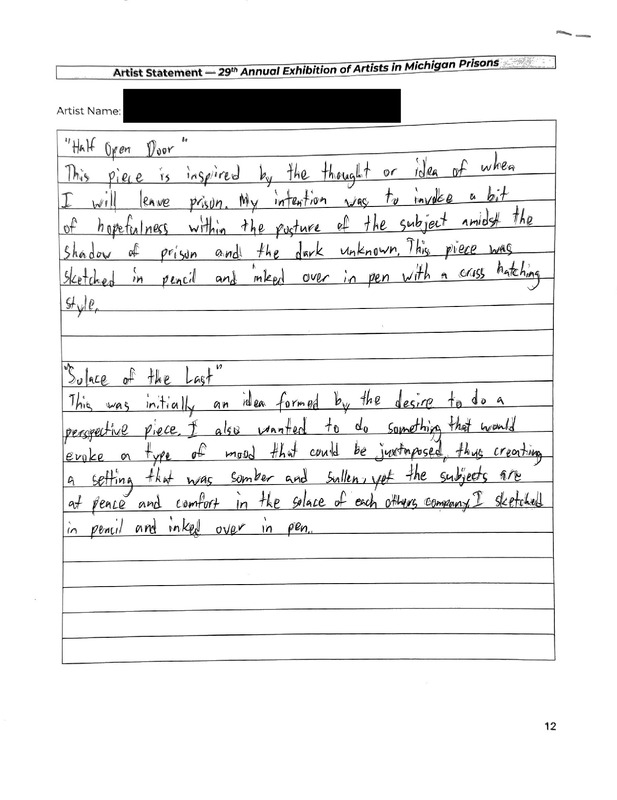 Artist Statement — 29th Annual Exhibition of Artists in Michigan Prisons
Artist Name:
"Half Open Door"
This piece is inspired by the thought or idea of when
I will leave prison. My intention was to invoke a bit
of hopefulness within the posture of the subject amidst the
shadow of prison and the dark unknown. This piece was
sketched in pencil and inked over in pen with a cross hatching
style.
"Solace of the Last"
This was initially an idea formed by the desire to do a
perspective piece. I also wanted to do something that would
evoke a type of mood that could be juxtaposed, thus creating
a setting that was somber and sullen, yet the subjects are
at peace and comfort in the solace of each others company. I sketched
in pencil and inked over in pen.
12